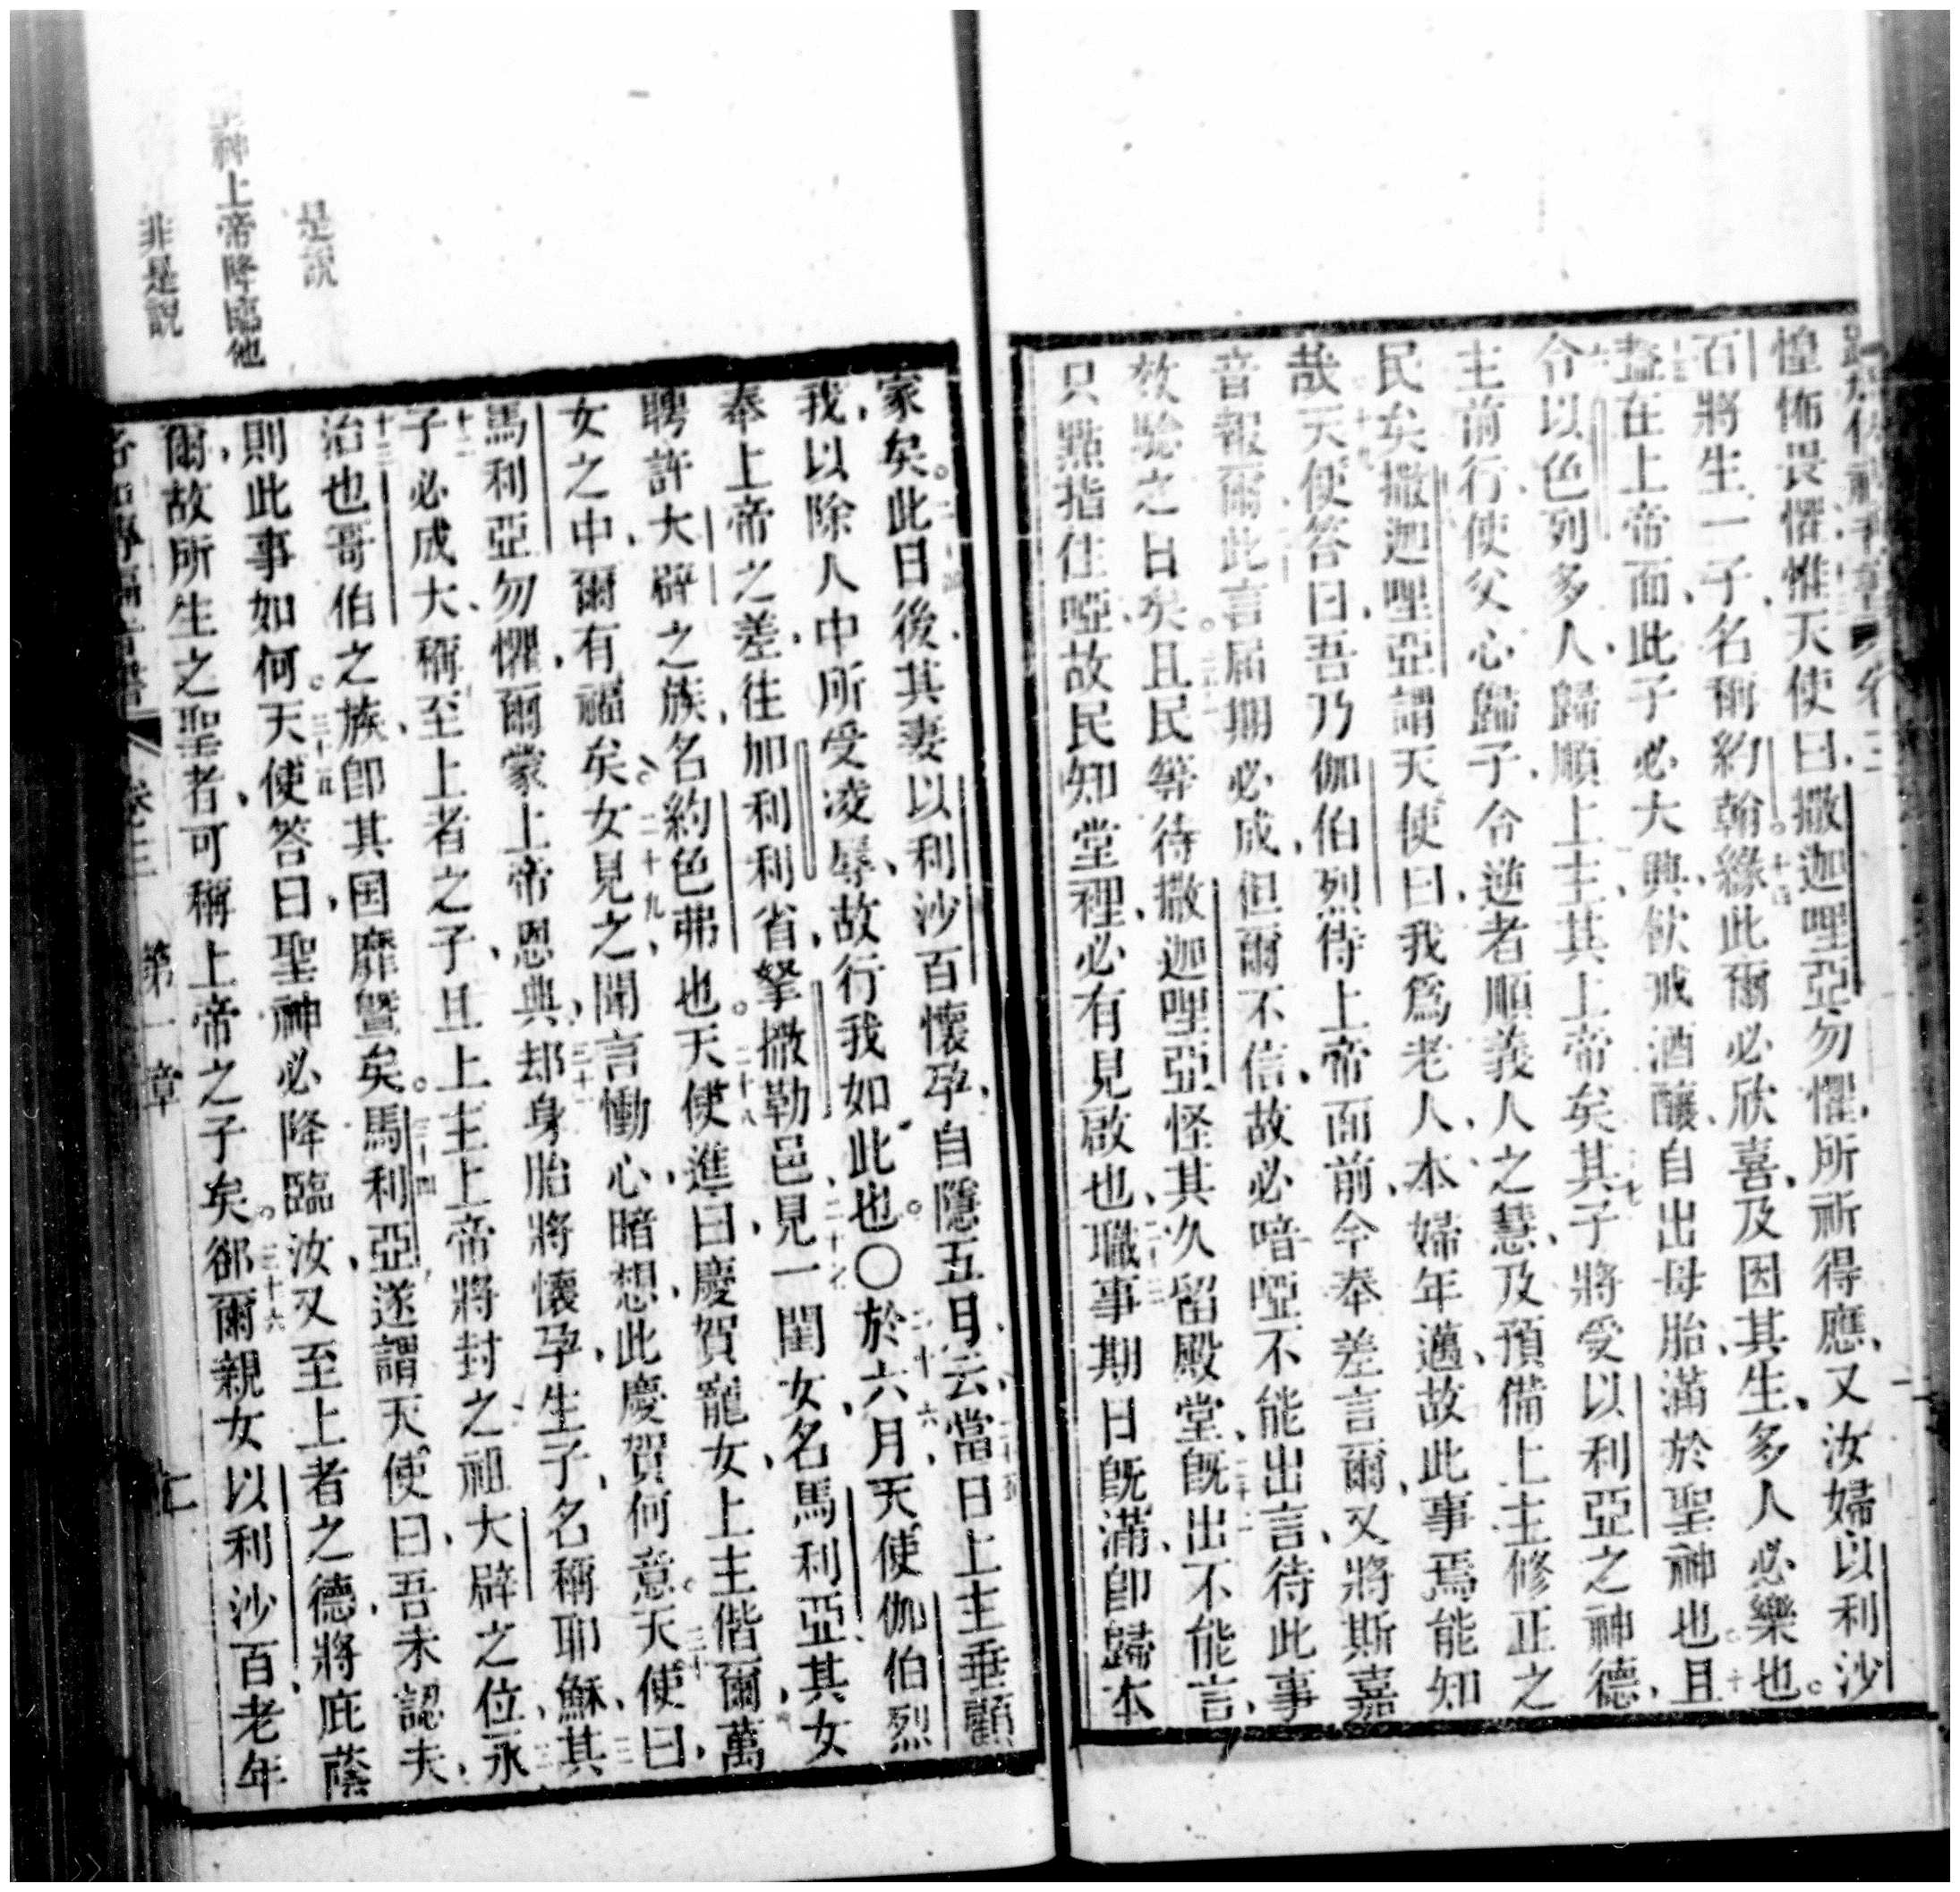 惶怖畏懼惟天使曰撒迦哩亞勿懼所祈得應又汝婦以利沙
百將生一子名稱約翰緣此爾必欣喜及因其生多人必樂也
蓋在上帝面此子必大興飲戒酒釀自出母胎滿於聖神也且
令以色列多人歸順上主其上帝矣其子將受以利亞之神德
主前行使父心歸子令逆者順義人之慧及預備上主修正之
民矣撒迦哩亞謂天使曰我爲老人本婦年邁故此事焉能知
哉天使答曰吾乃伽伯烈待上帝面前今奉差言爾又將斯嘉
音報爾此言屆期必成但爾不信故必喑啞不能出言待此事
效驗之日矣且民等待撒迦哩亞怪其久留殿堂旣出不能言
只點指住啞故民知堂裡必有見啟也職事期日旣滿卽歸本
是說
聖神上帝降臨他
非是說
家矣此日後其妻以利沙百懷孕自隱五月云當日上主垂顧
我以除人中所受凌辱故行我如此也〇於六月天使伽伯烈
奉上帝之差往加利利省拏撒勒邑見一閨女名馬利亞其女
聘許大辟之族名約色弗也天使進曰慶賀寵女上主偕爾萬
女之中爾有福矣女見之聞言慟心暗想此慶賀何意天使曰
馬利亞勿懼爾蒙上帝恩典却身胎將懷孕生子名稱耶穌其
子必成大稱至上者之子且上主上帝將封之祖大辟之位永
治也哥伯之族卽其国靡曁矣馬利亞遂謂天使曰吾未認夫
則此事如何天使答曰聖神必降臨汝又至上者之德將庇蔭
爾故所生之聖者可稱上帝之子矣郤爾親女以利沙百老年
卷三 第一章 七